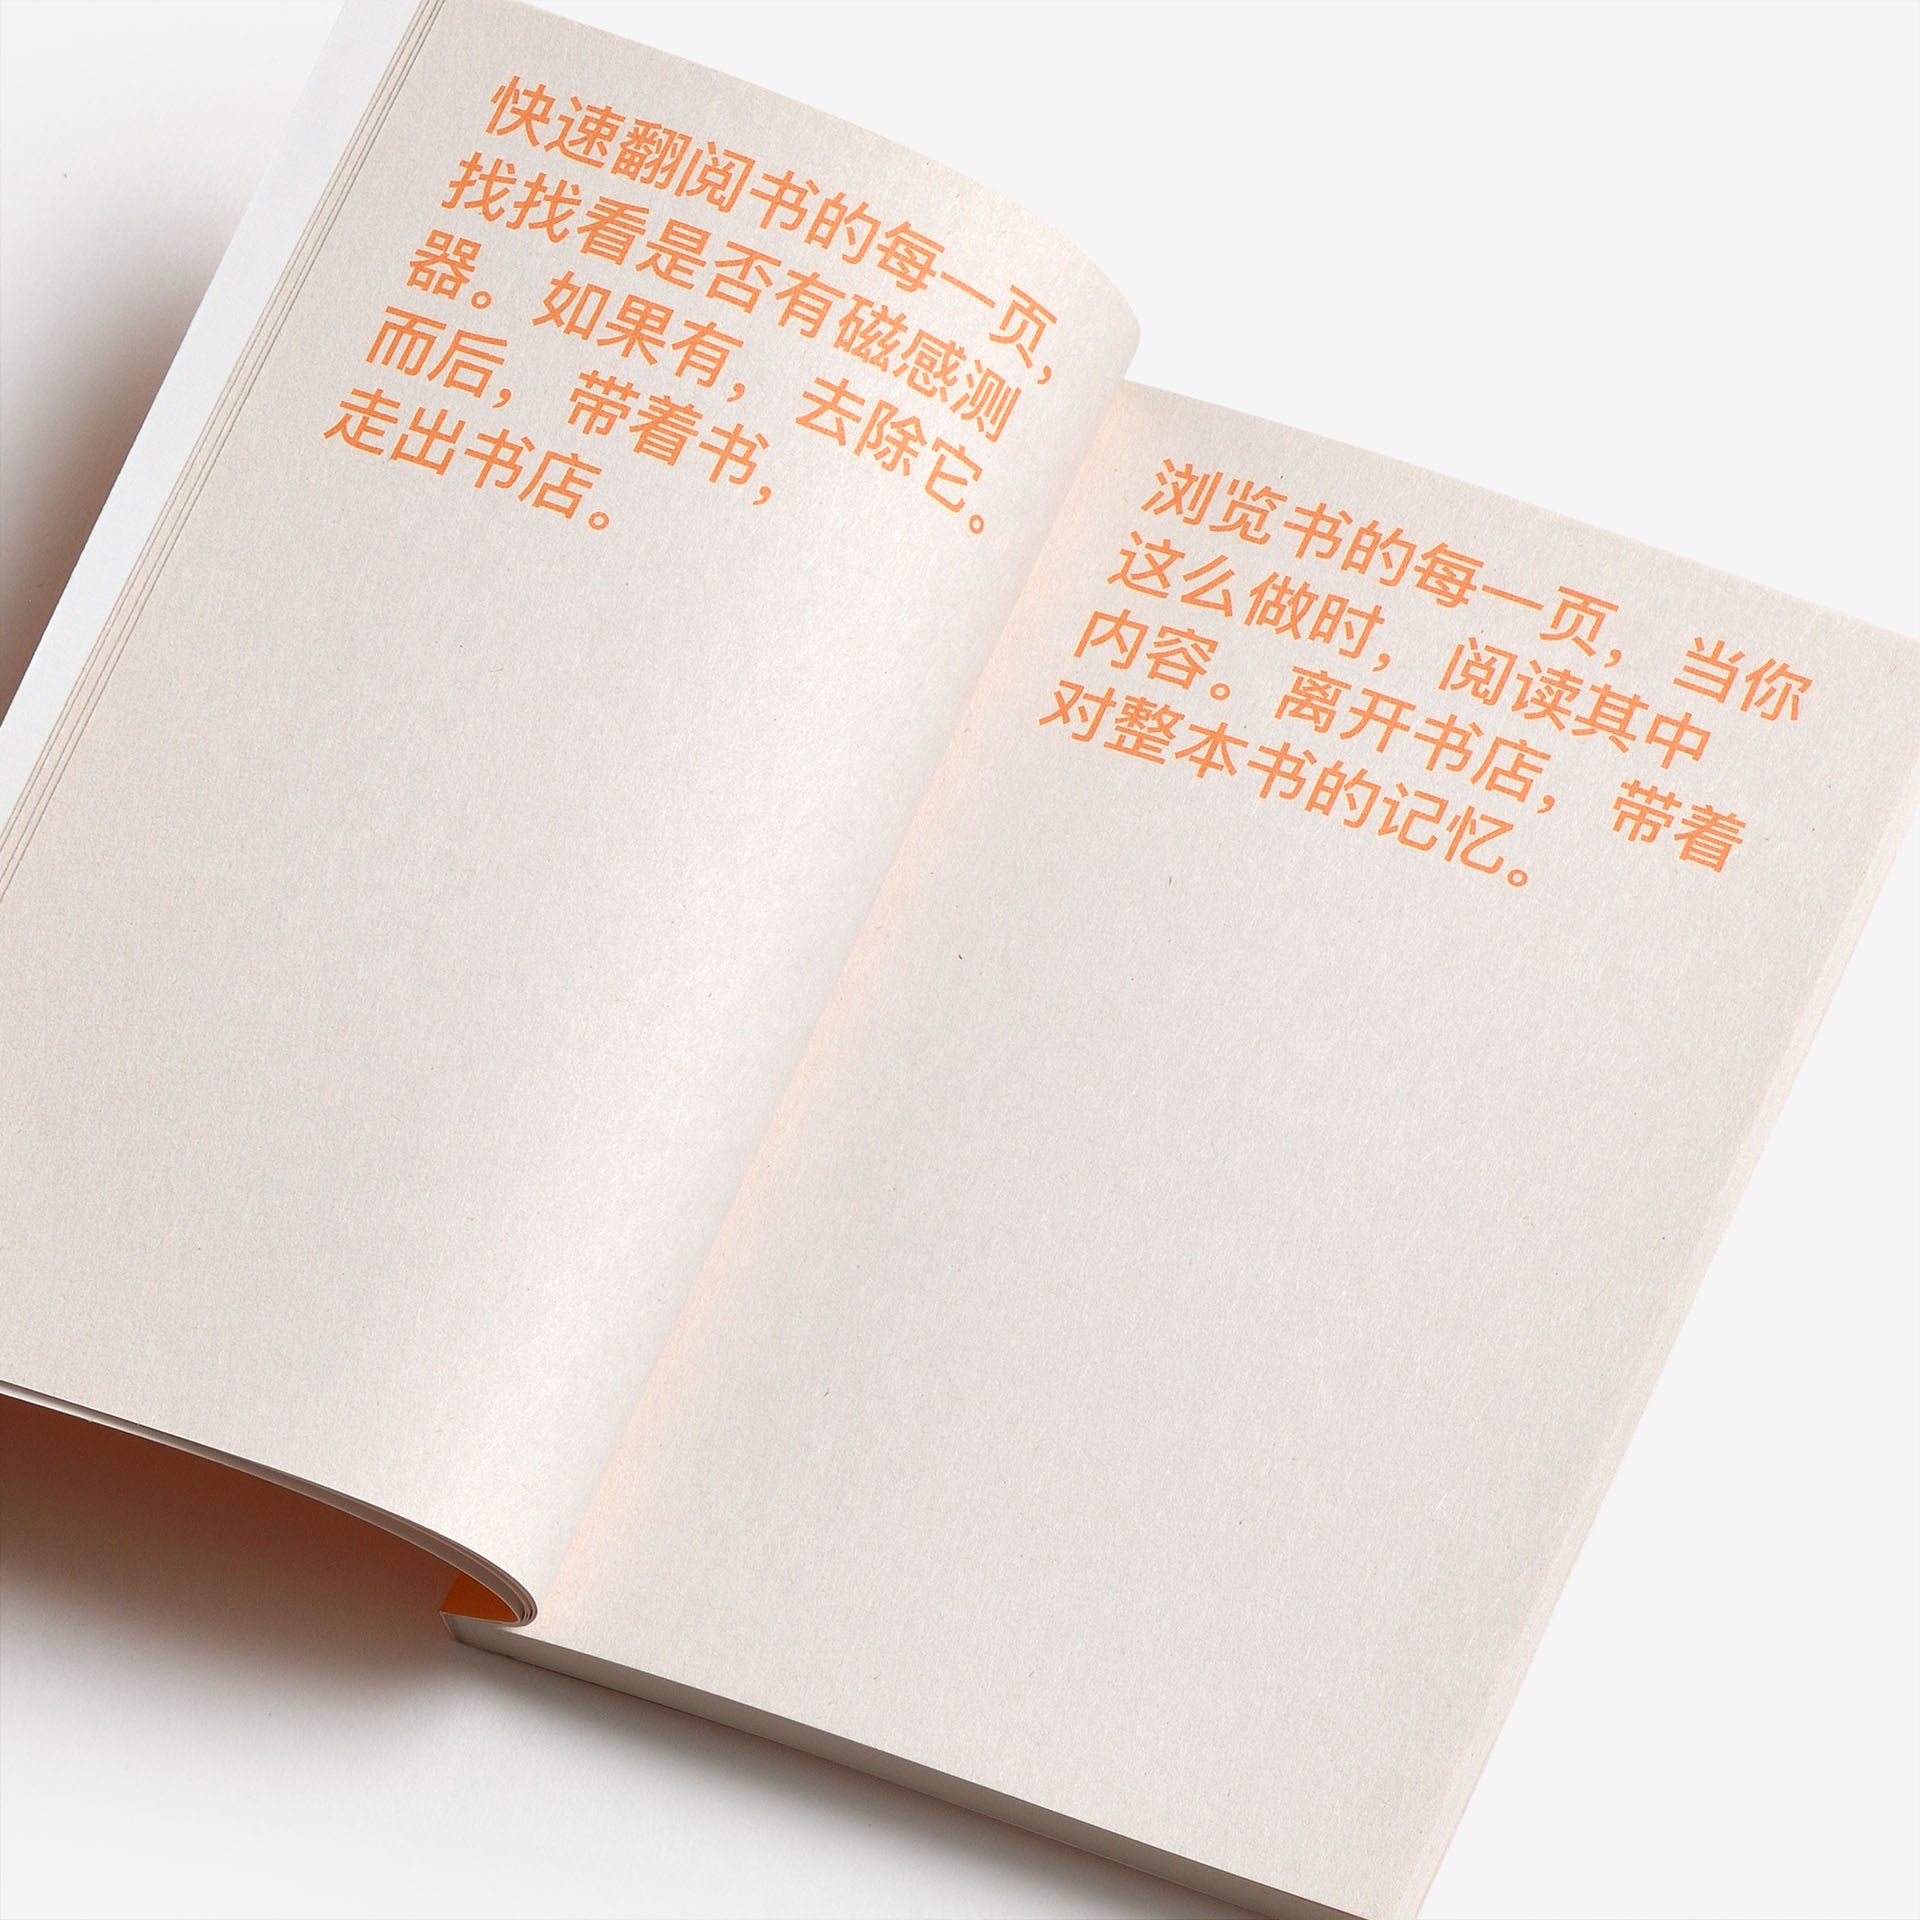 快速翻阅书的每一页，
找找看是否有磁感测
器。如果有，去除它。
而后，带着书，
走出书店。
浏览书的每一页，当你
这么做时，阅读其中
内容。离开书店，带着
对整本书的记忆。